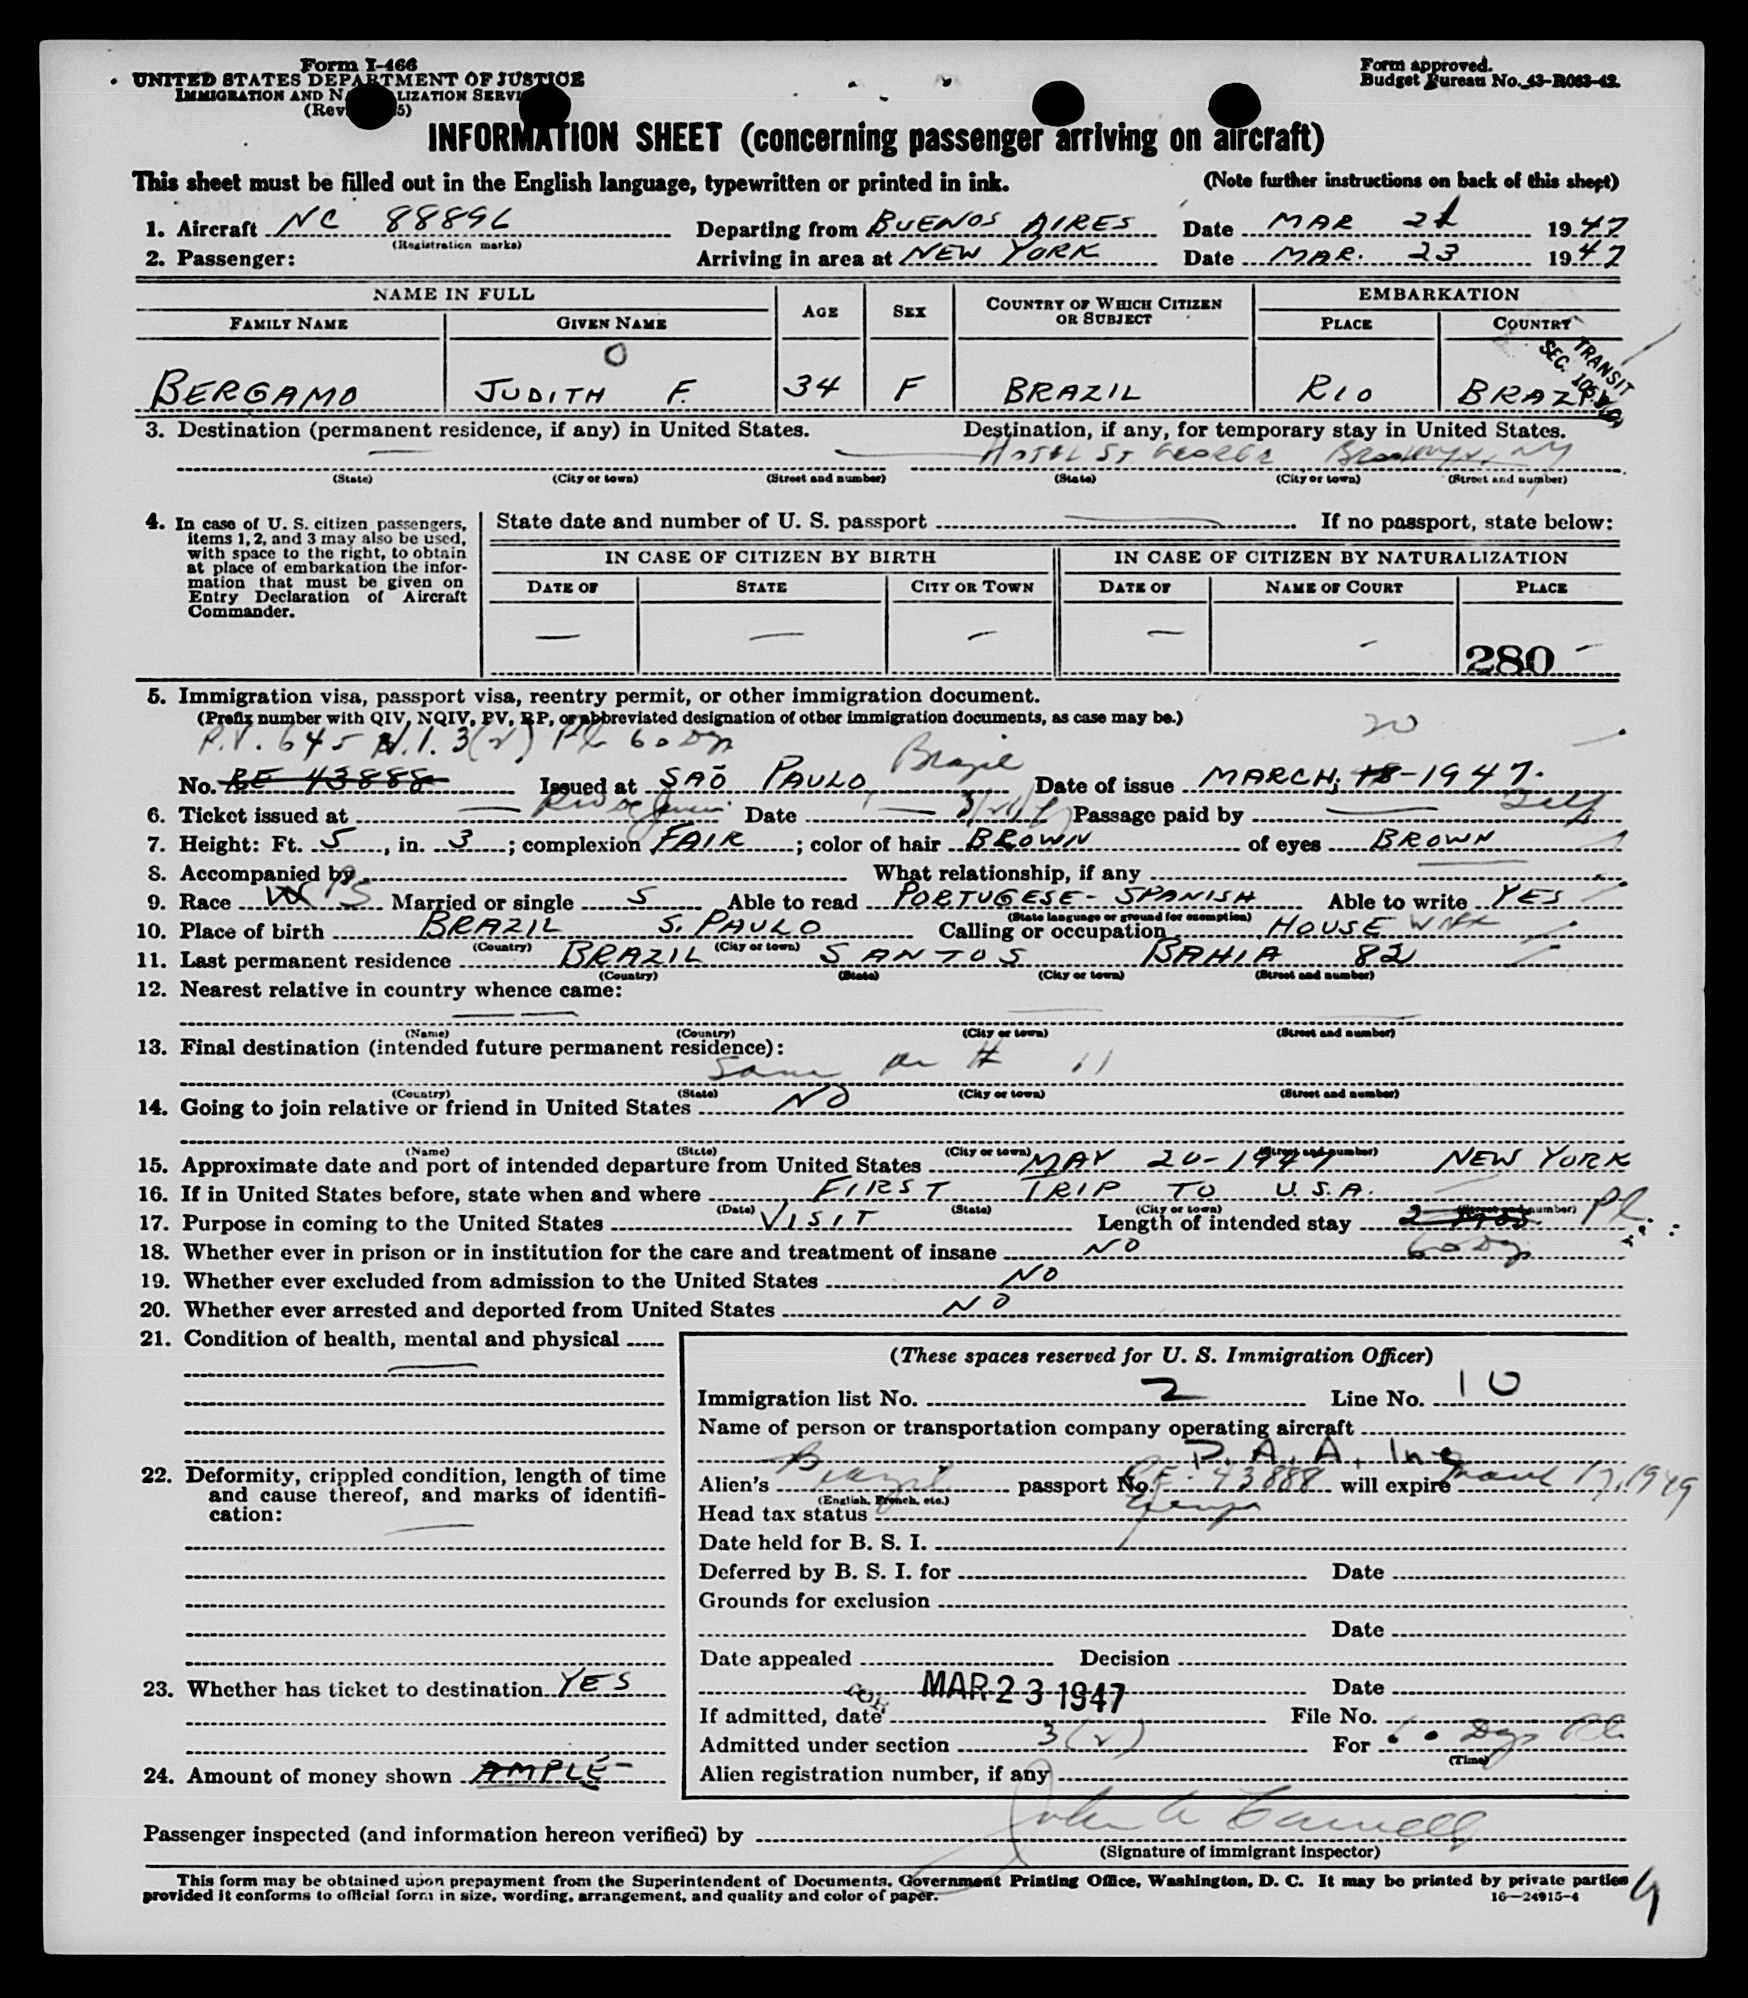 Form I-466
UNITED STATES DEPARTMENT OF JUSTICE
IMMIGRATION AND NA LIZATION SERVI
(Rev 5)
Form approved.
Budget Bureau No. 43-R063-42.
INFORMATION SHEET (concerning passenger arriving on aircraft)
This sheet must be filled out in the English language, typewritten or printed in ink. (Note further instructions on back of this sheet)
1. Aircraft NC 88896 Departing from BUENOS AIRES Date MAR 1947
(Registration marks)
2. Passenger: Arriving in area at NEW YORK Date MAR. 23 1947
NAME IN FULL AGE SEX COUNTRY OF WHICH CITIZEN OR SUBJECT EMBARKATION
FAMILY NAME GIVEN NAME PLACE COUNTRY
O
TRANSIT
SEC.
BERGAMO JUDITH F. 34 F BRAZIL RIO BRAZ
3. Destination (permanent residence, if any) in United States. Destination, if any, for temporary stay in United States.
— HOTEL ST GEORGE Brooklyn, NY
(State) (City or town) (Street and number) (State) (City or town) (Street and number)
4. In case of U. S. citizen passengers, items 1, 2, and 3 may also be used, with space to the right, to obtain at place of embarkation the information that must be given on Entry Declaration of Aircraft Commander.
State date and number of U. S. passport — If no passport, state below:
IN CASE OF CITIZEN BY BIRTH IN CASE OF CITIZEN BY NATURALIZATION
DATE OF STATE CITY OR TOWN DATE OF NAME OF COURT PLACE
— — — — — —
280
5. Immigration visa, passport visa, reentry permit, or other immigration document.
(Prefix number with QIV, NQIV, PV, RP, or abbreviated designation of other immigration documents, as case may be.)
P.V. 645 3(2) 60 Dys
Brazil 20
No. RE 43888 Issued at SAÕ PAULO Date of issue MARCH, 18-1947.
6. Ticket issued at Date Passage paid by Self
7. Height: Ft. 5, in. 3; complexion FAIR; color of hair BROWN of eyes BROWN
8. Accompanied by What relationship, if any —
9. Race Married or single S Able to read PORTUGESE-SPANISH Able to write YES
(State language or ground for exemption)
10. Place of birth BRAZIL S. PAULO Calling or occupation HOUSE WORK
(Country) (City or town)
11. Last permanent residence BRAZIL SANTOS BAHIA 82
(Country) (State) (City or town) (Street and number)
12. Nearest relative in country whence came:
— — — —
(Name) (Country) (City or town) (Street and number)
13. Final destination (intended future permanent residence):
Same as # 11
(Country) (State) (City or town) (Street and number)
14. Going to join relative or friend in United States NO
(Name) (State) (City or town) (Street and number)
15. Approximate date and port of intended departure from United States MAY 20-1947 NEW YORK
16. If in United States before, state when and where FIRST TRIP TO U.S.A.
(Date) (State) (City or town) (Street and number)
17. Purpose in coming to the United States VISIT Length of intended stay 2 MOS.
18. Whether ever in prison or in institution for the care and treatment of insane NO 60 Dys
19. Whether ever excluded from admission to the United States NO
20. Whether ever arrested and deported from United States NO
21. Condition of health, mental and physical
—
22. Deformity, crippled condition, length of time and cause thereof, and marks of identification:
—
23. Whether has ticket to destination YES
24. Amount of money shown AMPLE
(These spaces reserved for U. S. Immigration Officer)
Immigration list No. 2 Line No. 10
Name of person or transportation company operating aircraft
P. A. A. Inc
Alien's Brazil passport No. RE. 43888 will expire March 17, 1949
(English, French, etc.)
Head tax status
Date held for B. S. I.
Deferred by B. S. I. for Date
Grounds for exclusion
Date
Date appealed Decision
Date
FOR MAR 23 1947
If admitted, date File No.
Admitted under section 3(2) For 60 Dys
(Time)
Alien registration number, if any
Passenger inspected (and information hereon verified) by
(Signature of immigrant inspector)
This form may be obtained upon prepayment from the Superintendent of Documents, Government Printing Office, Washington, D. C. It may be printed by private parties
provided it conforms to official form in size, wording, arrangement, and quality and color of paper. 16—24915-4